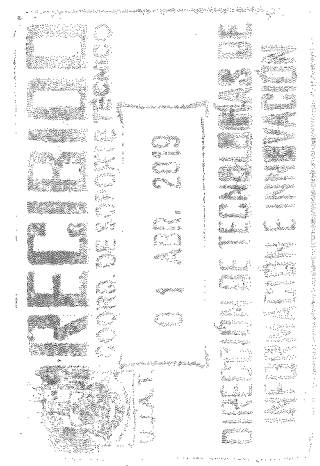 RECIBIDO
COORD. DE SOPORTE TÉCNICO
01 ABR. 2019
U.J.A.T.
DIRECCIÓN DE TECNOLOGÍAS DE
INFORMACIÓN E INNOVACIÓN